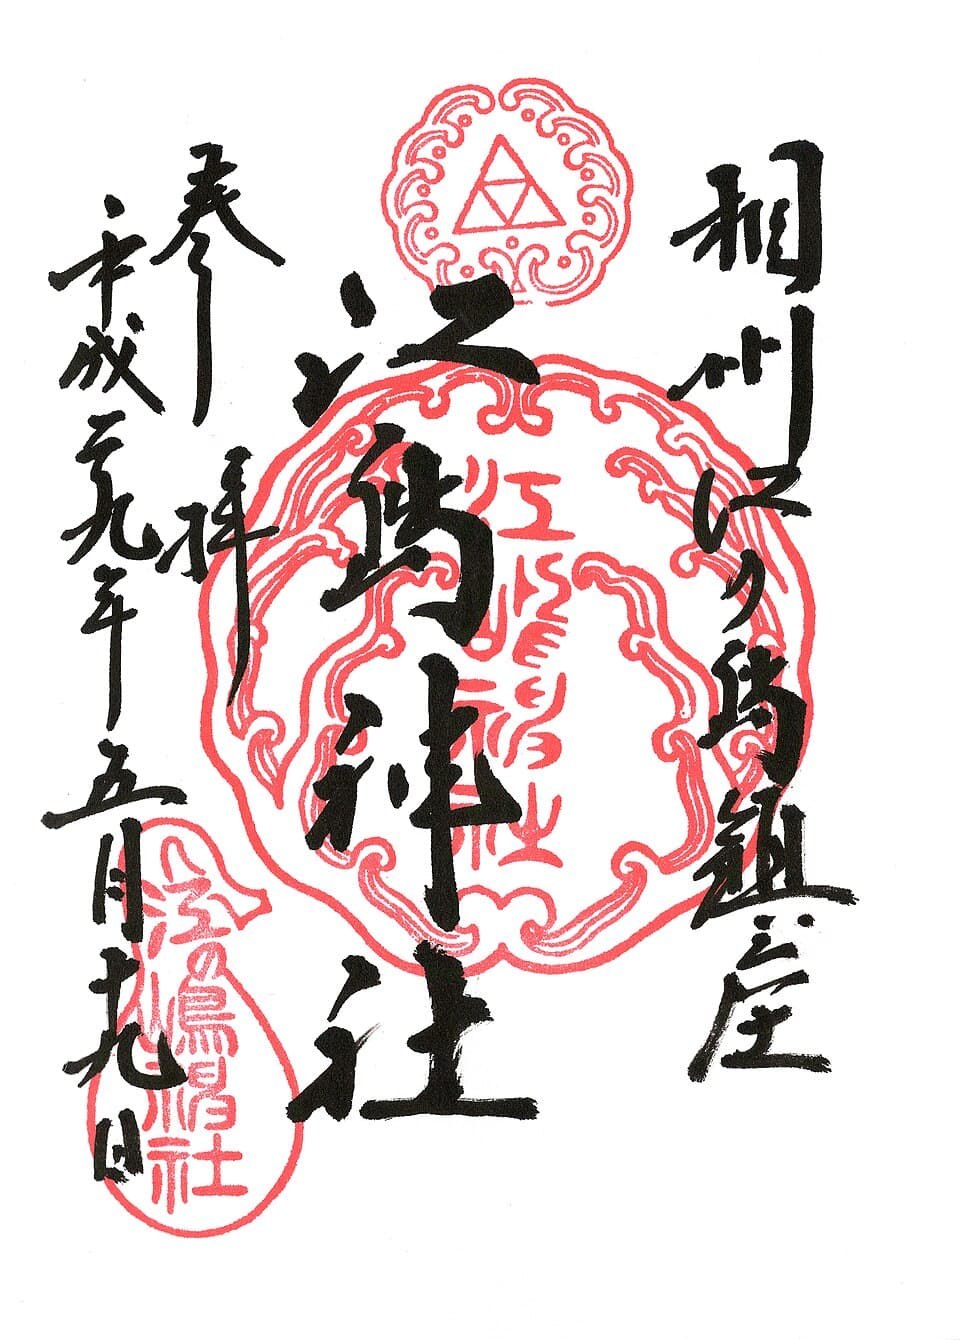 相州江ノ島鎮座
江島神社
参拝
平成二九年五月十九日
江島神社
江の嶋神社